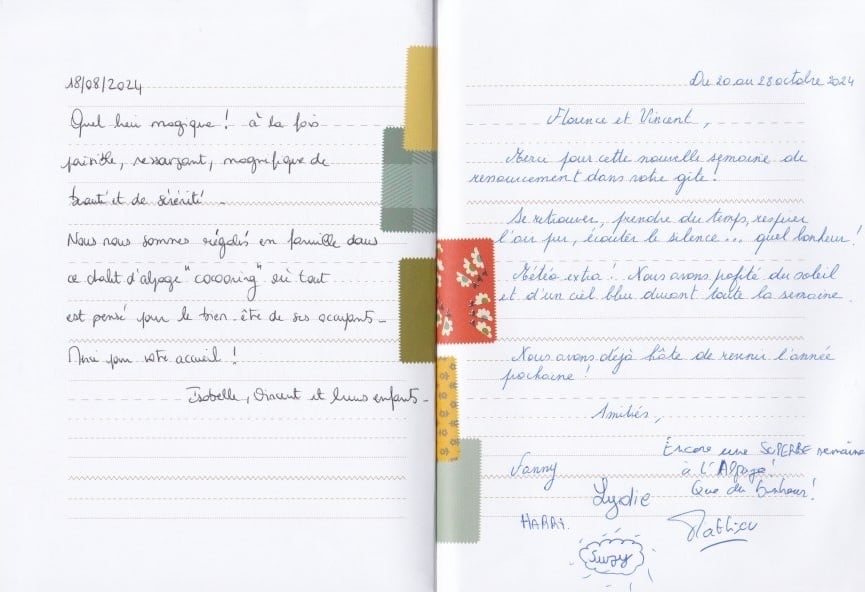 18/08/2024
Quel lieu magique ! à la fois
paisible, ressourçant, magnifique de
beauté et de sérénité.
Nous nous sommes régalés en famille dans
ce chalet d'alpage "cocooning" où tout
est pensé pour le bien-être de ses occupants.
Merci pour votre accueil !
Isabelle, Vincent et leurs enfants.
Du 20 au 28 octobre 2024
Florence et Vincent,
Merci pour cette nouvelle semaine de
ressourcement dans votre gîte !
Se retrouver, prendre du temps, respirer
l'air pur, écouter le silence... quel bonheur !
Météo extra ! Nous avons profité du soleil
et d'un ciel bleu durant toute la semaine.
Nous avons déjà hâte de revenir l'année
prochaine !
Amitiés,
Encore une SUPERBE semaine
à l'Alpage !
Que du bonheur !
Fanny
Lydie
HARRY.
Mathieu
Suzy